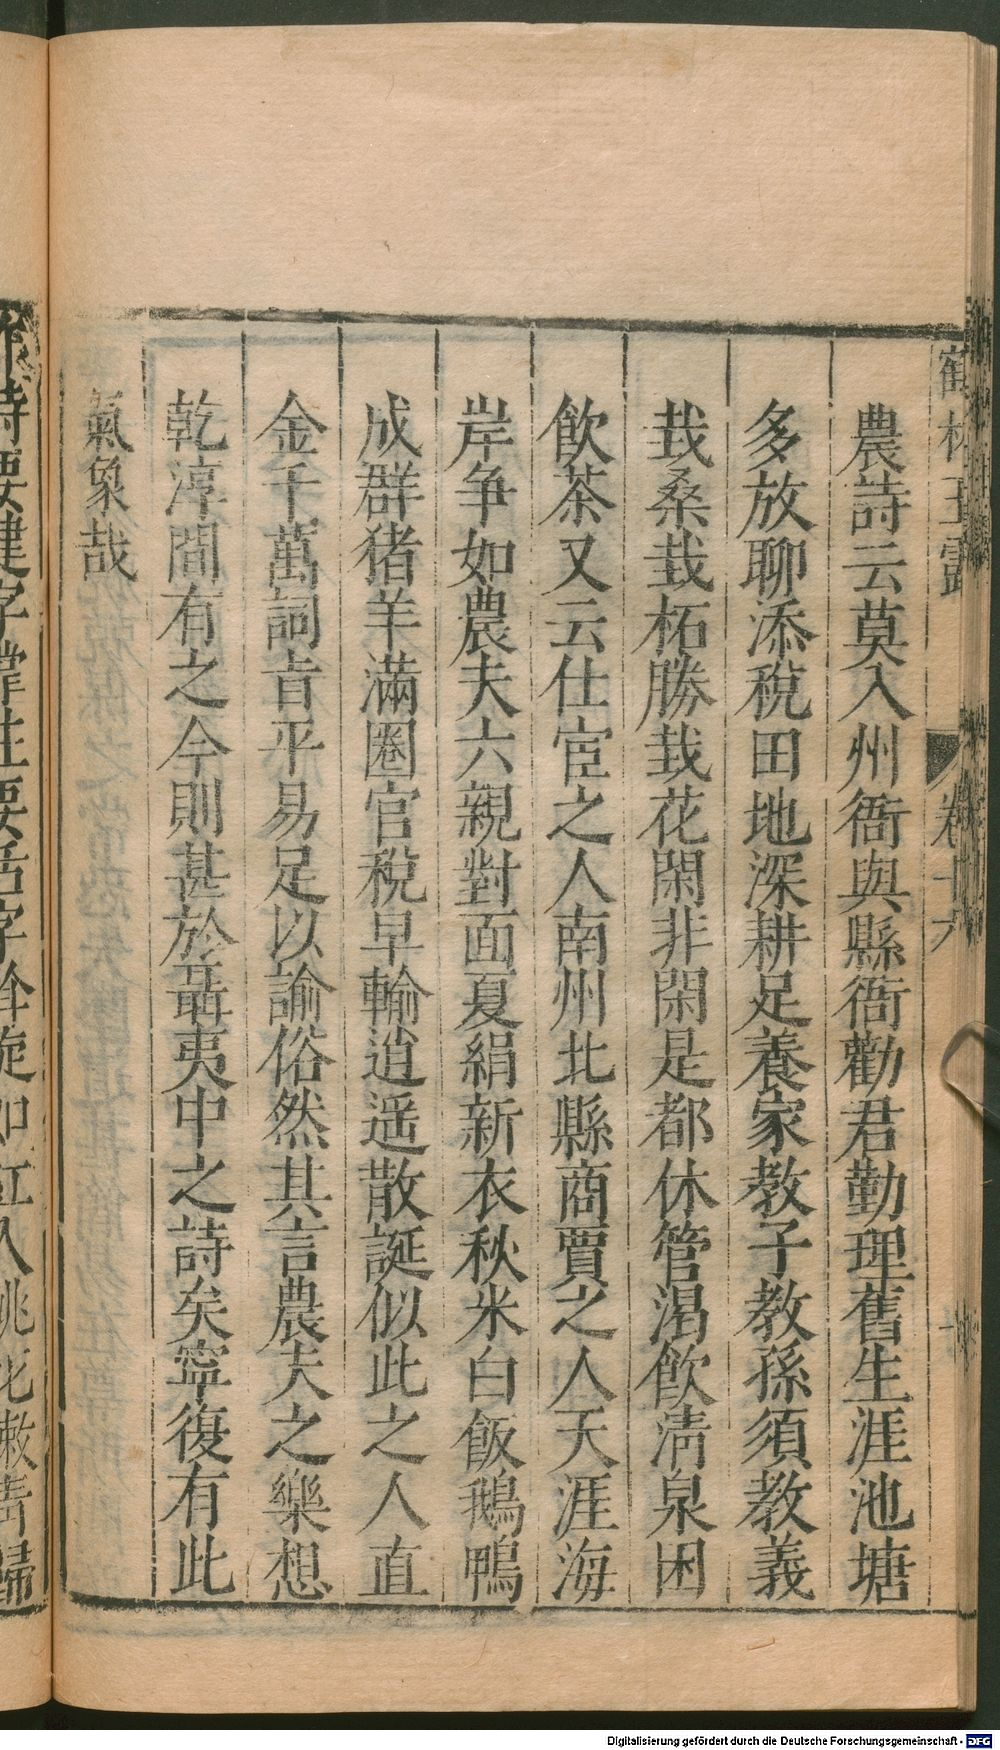 鶴林玉露 卷十六
農詩云莫入州衙與縣衙勸君勤理舊生涯池塘
多放聊添稅田地深耕足養家教子教孫須教義
栽桑栽柘勝栽花閑非閑是都休管渴飲清泉困
飲茶又云仕宦之人南州北縣商賈之人天涯海
岸争如農夫六親對面夏絹新衣秋米白飯鵝鴨
成群猪羊滿圈官稅早輸逍遥散誕似此之人直
金千萬詞旨平易足以諭俗然其言農夫之樂想
乾淳間有之今則甚於聶夷中之詩矣寧復有此
氣象哉
作詩要健字撑拄要活字斡旋如紅入桃花嫩青歸
Digitalisierung gefördert durch die Deutsche Forschungsgemeinschaft - DFG